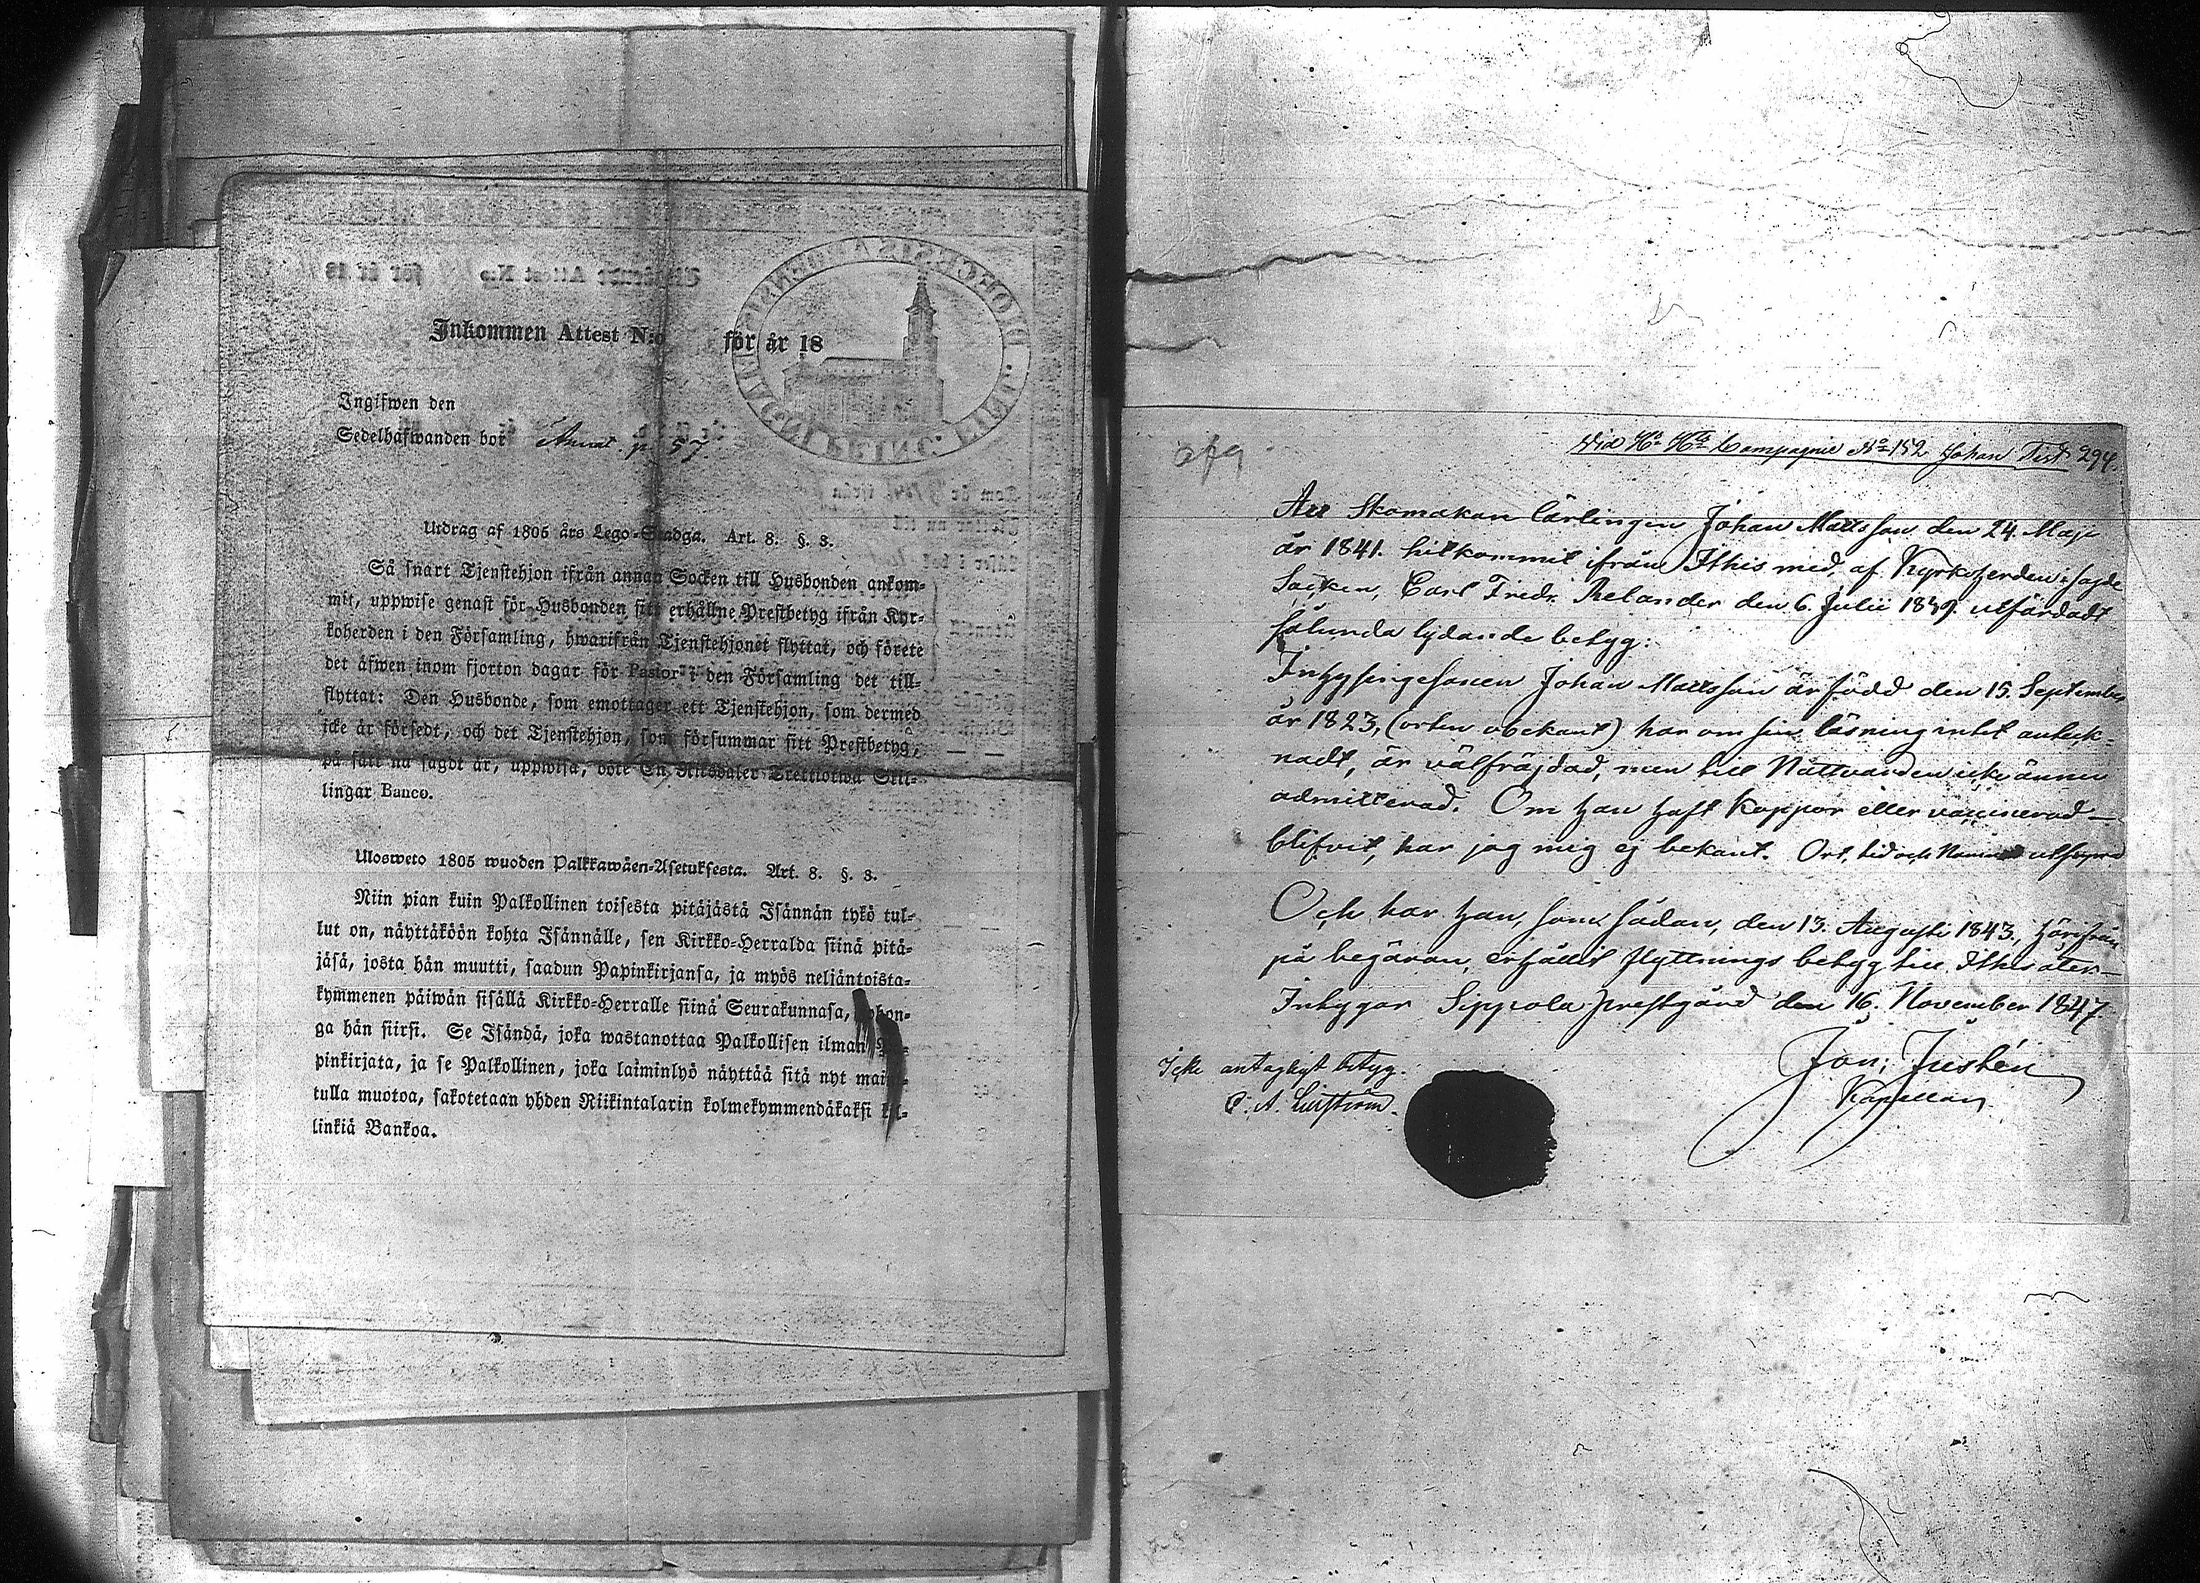 Inkommen Attest N:o för år 18
Ingifwen den
Sedelhafwanden bor Annat p. 57
Utdrag af 1805 års Lego-Stadga. Art. 8. §. 3.
Så snart Tjenstehjon ifrån annan Socken till Husbonden ankom-
mit, uppwise genast för Husbonden sitt erhållne Prestbetyg ifrån Kyr-
koherden i den Församling, hwarifrån Tjenstehjonet flyttat, och förete
det äfwen inom fjorton dagar för Pastor i den Församling det till-
flyttat: Den Husbonde, som emottager ett Tjenstehjon, som dermed
icke är försedt, och det Tjenstehjon, som försummar sitt Prestbetyg,
på sätt nu sagdt är, uppwisa, böte En Riksdaler Trettiotwå Skil-
lingar Banco.
Ulosweto 1805 wuoden Palkkawäen-Asetuksesta. Art. 8. §. 3.
Niin pian kuin Palkollinen toisesta pitäjästä Isännän tykö tul-
lut on, näyttäköön kohta Isännälle, sen Kirkko-Herralda siinä pitä-
jäsä, josta hän muutti, saadun Papinkirjansa, ja myös neljäntoista-
kymmenen päiwän sisällä Kirkko-Herralle siinä Seurakunnasa, johon-
ga hän siirsi. Se Isändä, joka wastanottaa Palkollisen ilman Pa-
pinkirjata, ja se Palkollinen, joka laiminlyö näyttää sitä nyt mai-
tulla muotoa, sakotetaan yhden Riikintalarin kolmekymmendäkaksi kil-
linkiä Bankoa.
Vid Compagnie No 152 Johan Fist 294.
Att Skomakare lärlingen Johan Mattsson den 24. Maji
år 1841. hitkommit ifrån Ithis med, af Kyrkoherden i sagde
Socken, Carl Fredr. Relander den 6. Julii 1839. utfärdadt
sålunda lydande betyg:
Inhysingesonen Johan Mattsson är född den 15. September
år 1823, (orten obekant) har om sin läsning intet anteck-
nadt, är välfräjdad, men till Nattvarden icke ännu
admitterad. Om han haft Koppor eller vaccinerad
blifvit, har jag mig ej bekant. Ort, tid och Namn utsupra
Och har han, som sådan, den 13. Augusti 1843., härifrån
på begäran, erhållit flyttnings betyg till Ithis åter-
Intygar Sippola prestgård den 16. November 1847.
Jon: Justén
Kapellan
Icke antagligt betyg.